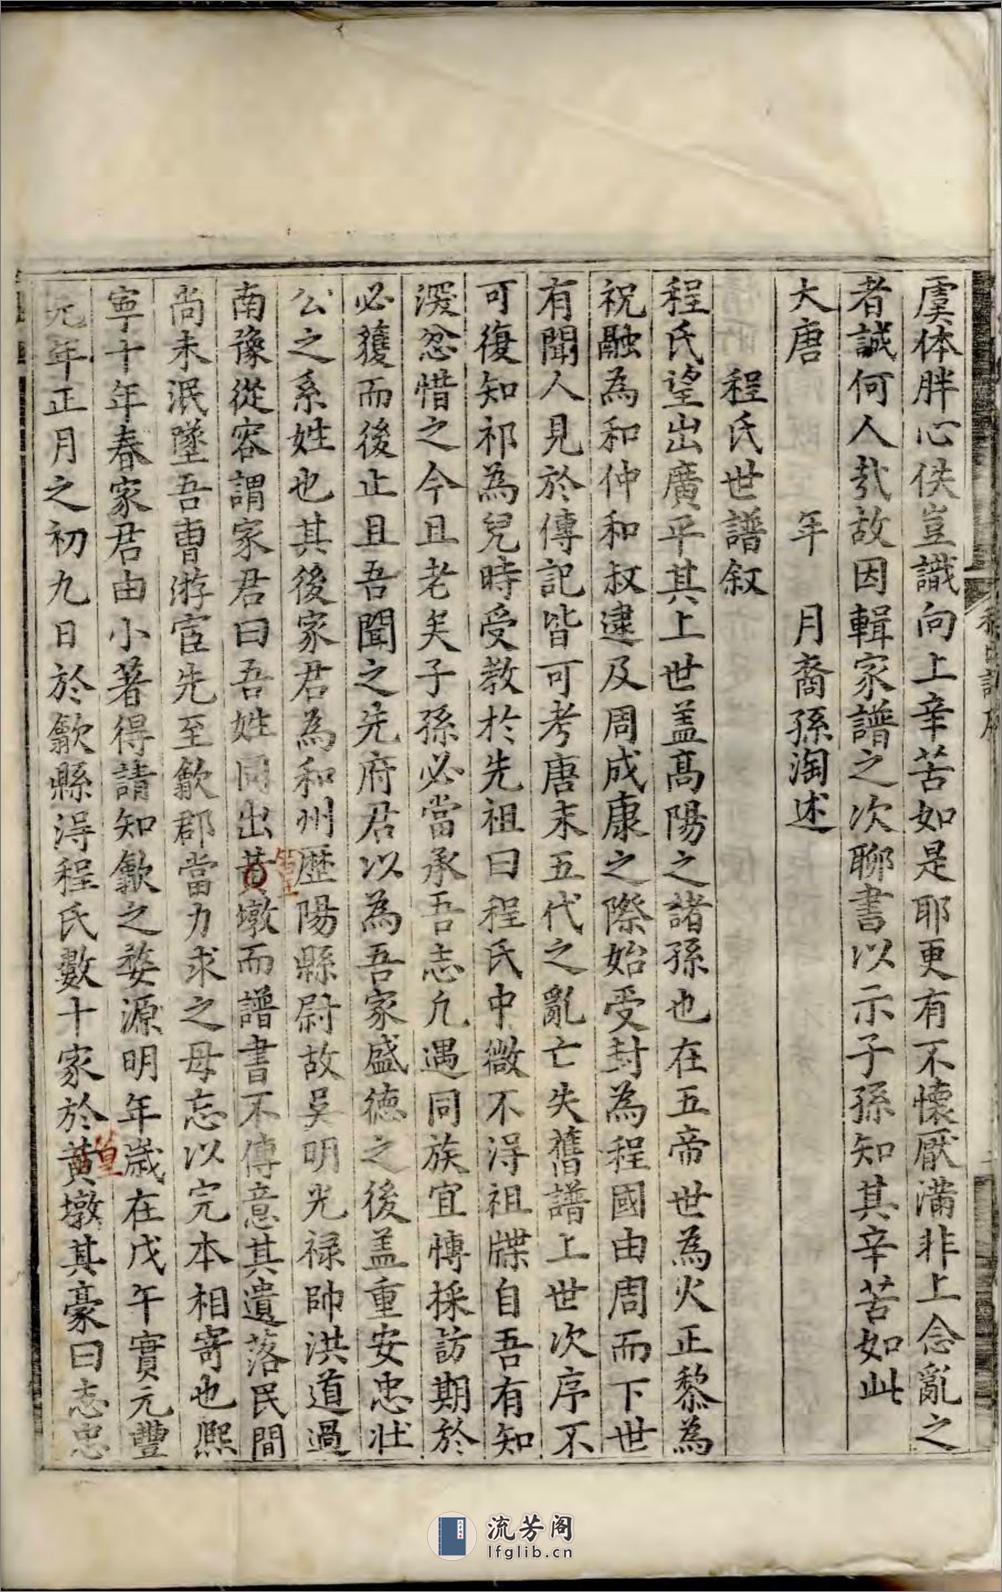 虞体胖心佚豈識向上辛苦如是耶更有不懷厭滿非上念亂之
者誠何人㢤故因輯家譜之次聊書以示子孫知其辛苦如此
大唐　年　月裔孫淘述
程氏世譜叙
程氏望出廣平其上世盖髙陽之諸孫也在五帝世為火正黎為
祝融為和仲和叔逮及周成康之際始受封為程國由周而下世
有聞人見於傳記皆可考唐末五代之亂亡失舊譜上世次序不
可復知祁為兒時受教於先祖曰程氏中微不淂祖牒自吾有知
深忿惜之今且老矣子孫必當承吾志凢遇同族宜慱採訪期於
必獲而後止且吾聞之先府君以為吾家盛徳之後盖重安忠壯
公之系姓也其後家君為和州歴陽縣尉故吳明光禄帥洪道過
南豫從容謂家君曰吾姓同出黄墩而譜書不傳意其遺落民間
尚未泯墜吾曹游宦先至歙郡當力求之毋忘以完本相寄也熈
寧十年春家君由小著得請知歙之婺源明年歳在戊午實元豐
元年正月之初九日於歙縣淂程氏數十家於黄墩其豪曰志忠
篁
篁
流芳阁
lfglib.cn